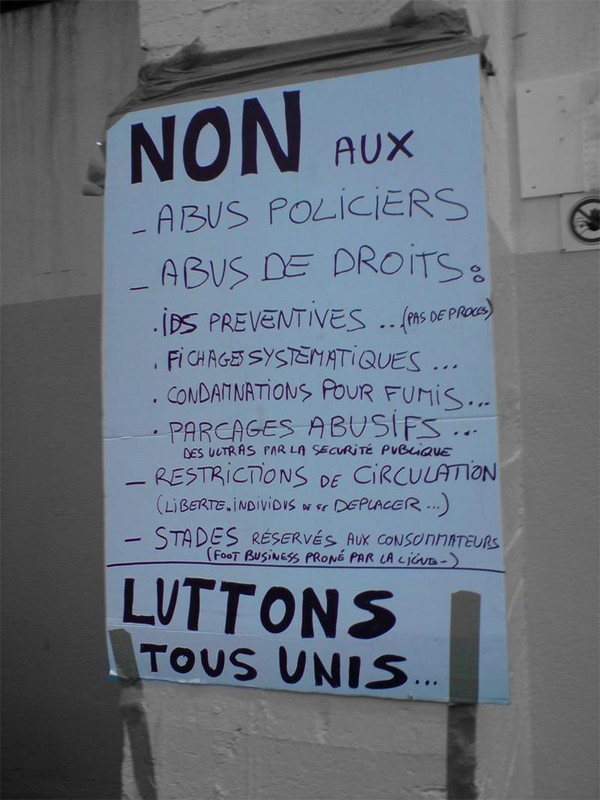 NON AUX
- ABUS POLICIERS
- ABUS DE DROITS :
. IDS PREVENTIVES ... (PAS DE PROCES)
. FICHAGE SYSTÈMATIQUES ...
. CONDAMNATIONS POUR FUMIS...
. PARCAGES ABUSIFS ...
DES ULTRAS PAR LA SECURITÉ PUBLIQUE
- RESTRICTIONS DE CIRCULATION
(LIBERTE. INDIVIDUS DE SE DEPLACER ...)
- STADES RÉSERVÉS AUX CONSOMMATEURS
(FOOT BUSINESS PRONÉ PAR LA LIGUE -)
LUTTONS
TOUS UNIS...